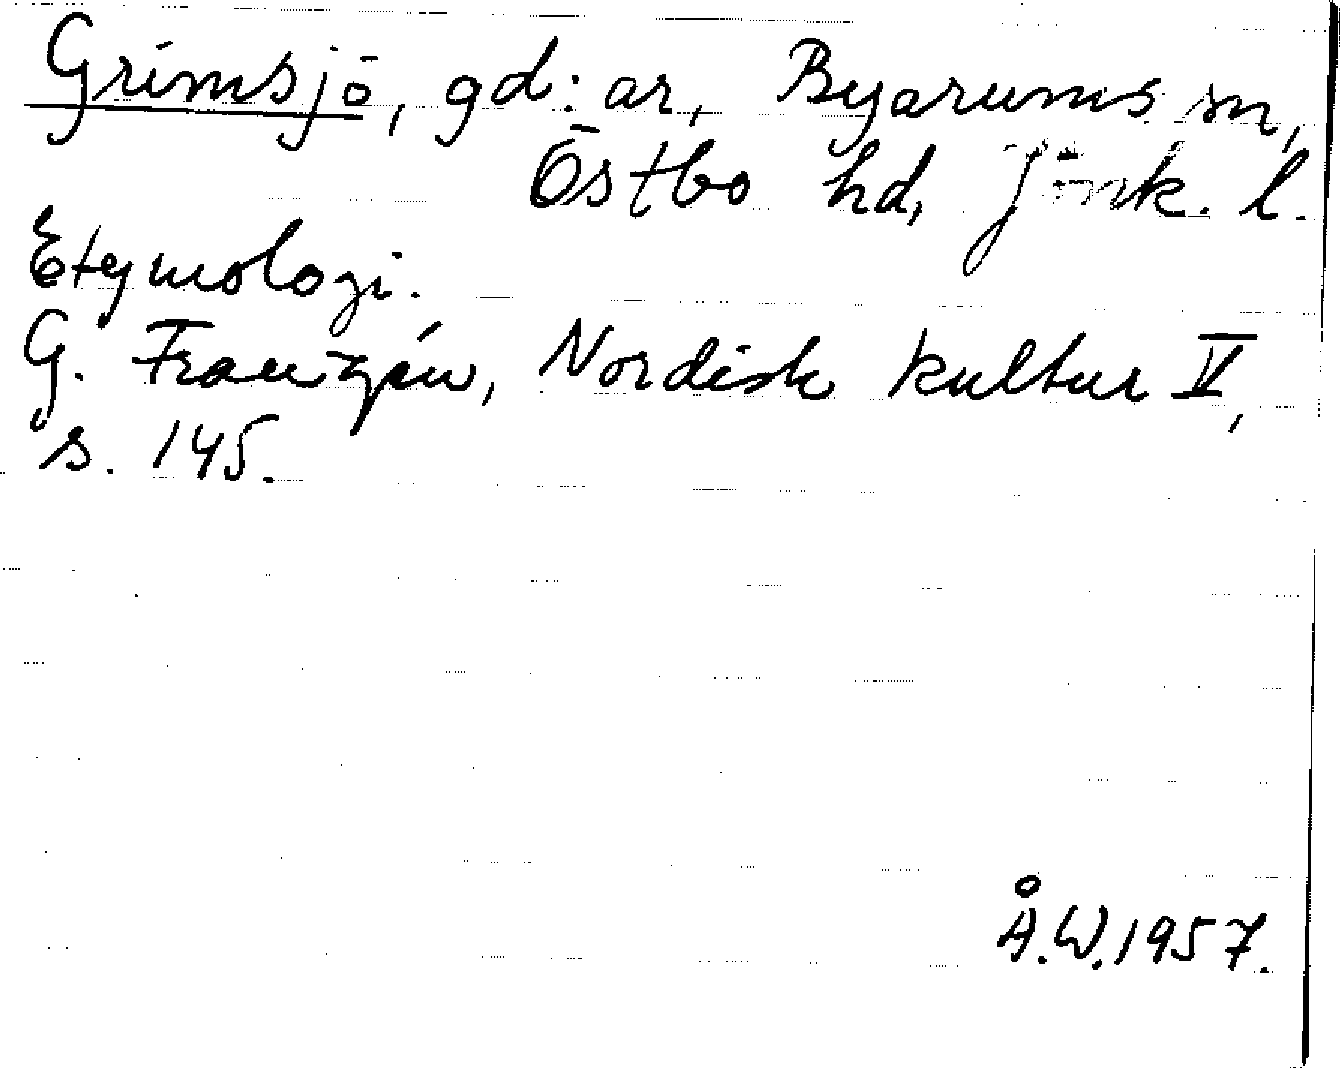 Grimsjö, gd:ar, Byarums sn,
Östbo hd, Jönk. l.
Etymologi.
G. Franzén, Nordisk kultur V,
s. 145.
Å.W.1957.